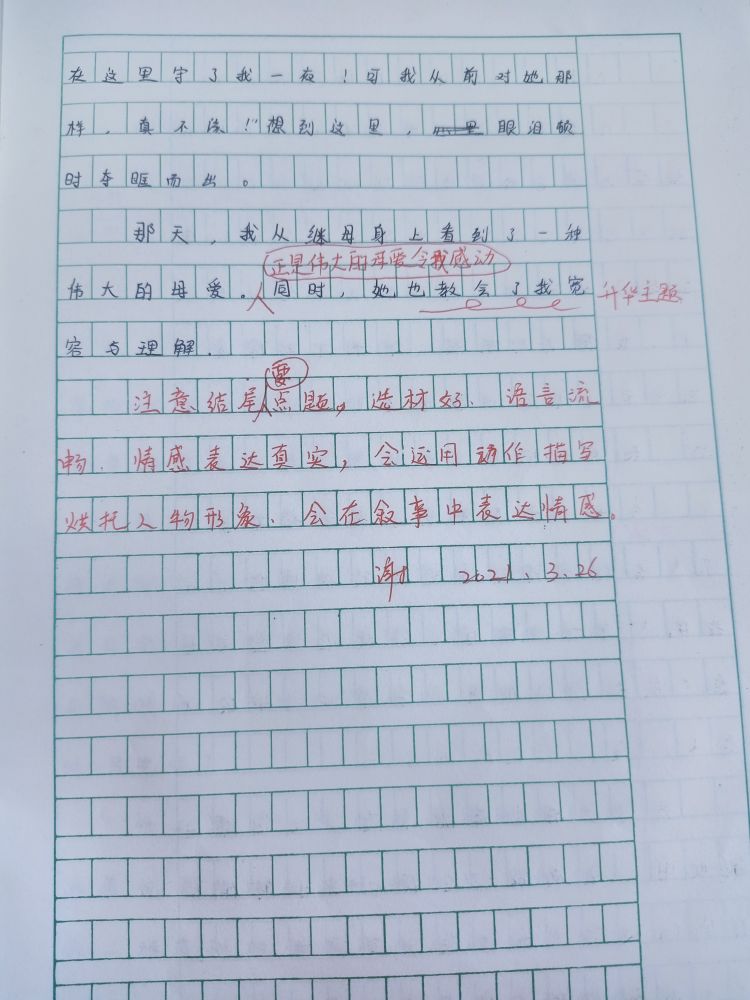 在这里守了我一夜！可我从前对她那
样，真不该！"想到这里，眼泪顿
时夺眶而出。
那天，我从继母身上看到了一种
正是伟大的母爱令我感动
伟大的母爱。同时，她也教会了我宽
升华主题
容与理解.
要
注意结尾点题，选材好.语言流
畅.情感表达真实，会运用动作描写
烘托人物形象.会在叙事中表达情感。
谢 2021.3.26